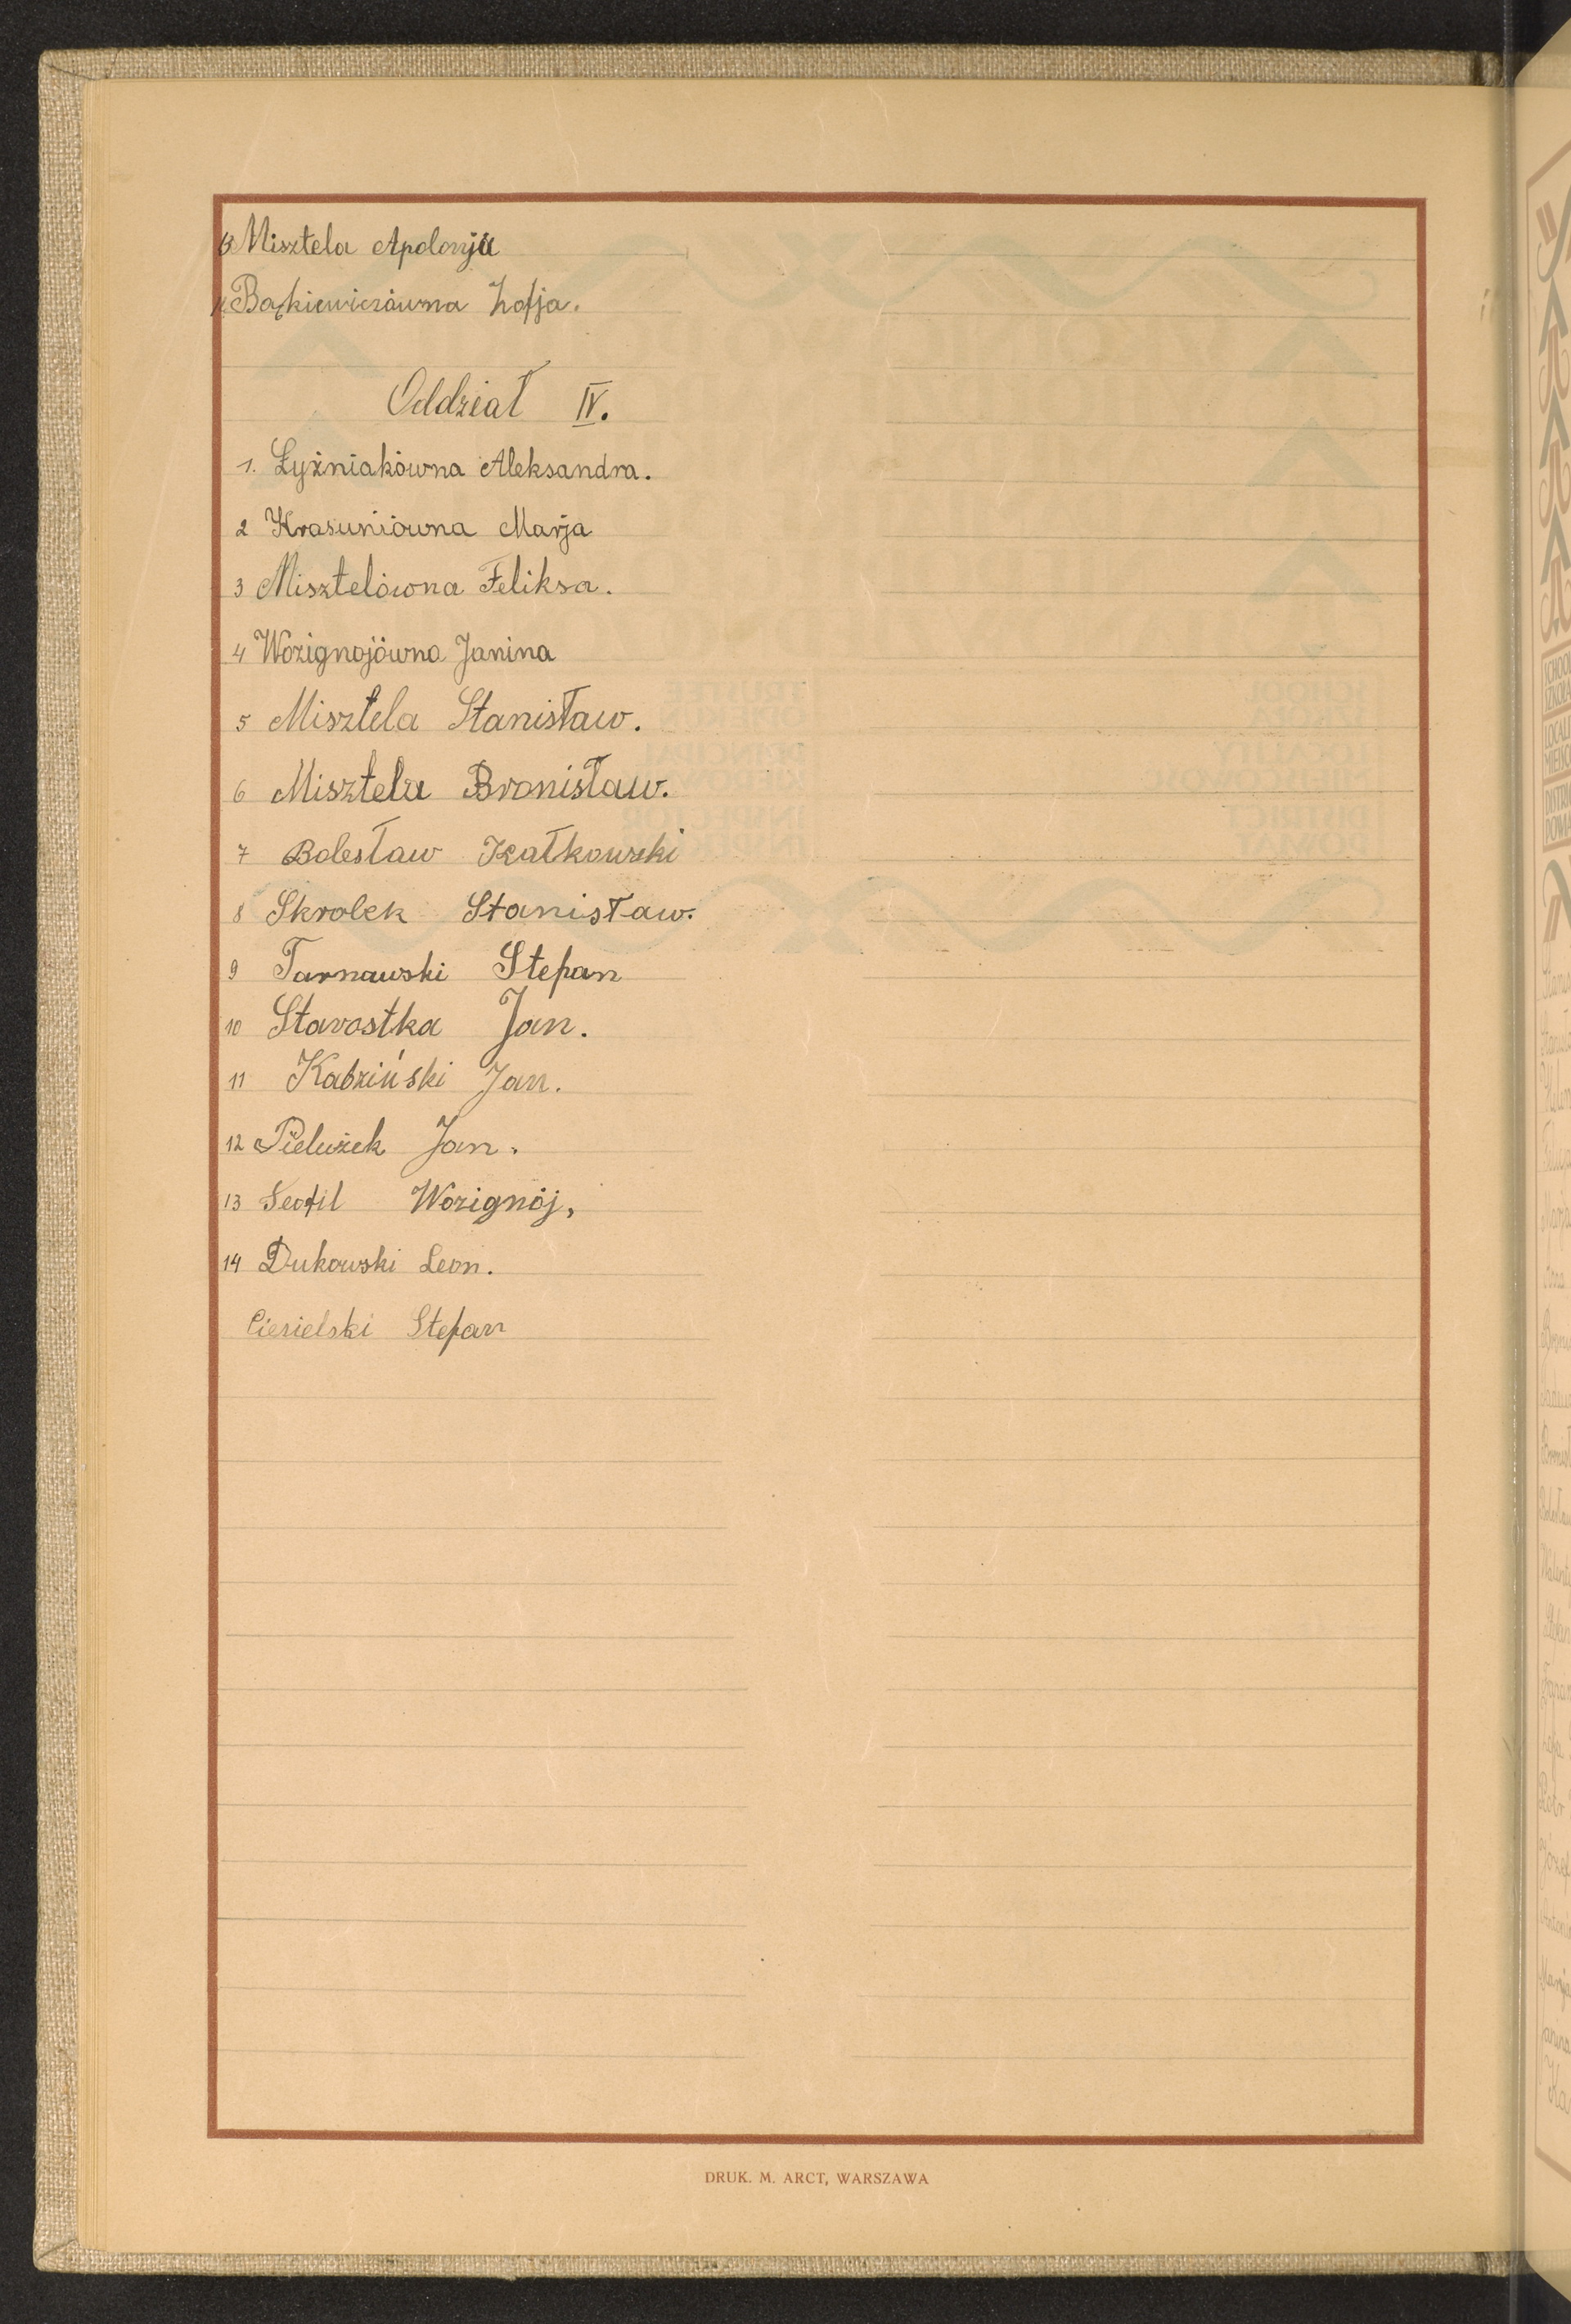 13 Misztela Apolonja
14. Bąkiewiczówna Zofja.
Oddział IV.
1. Łyźniakówna Aleksandra.
2 Krasuniówna Marja
3 Misztelówna Feliksa.
4 Wozignojówna Janina
5 Misztela Stanisław.
6 Misztela Bronisław.
7 Bolesław Kałkowski
8 Skrolek Stanisław.
9 Tarnawski Stefan
10 Starostka Jan.
11 Kabziński Jan.
12 Pielużek Jan.
13 Teofil Wozignój,
14 Dukowski Leon.
Ciesielski Stefan
DRUK. M. ARCT, WARSZAWA